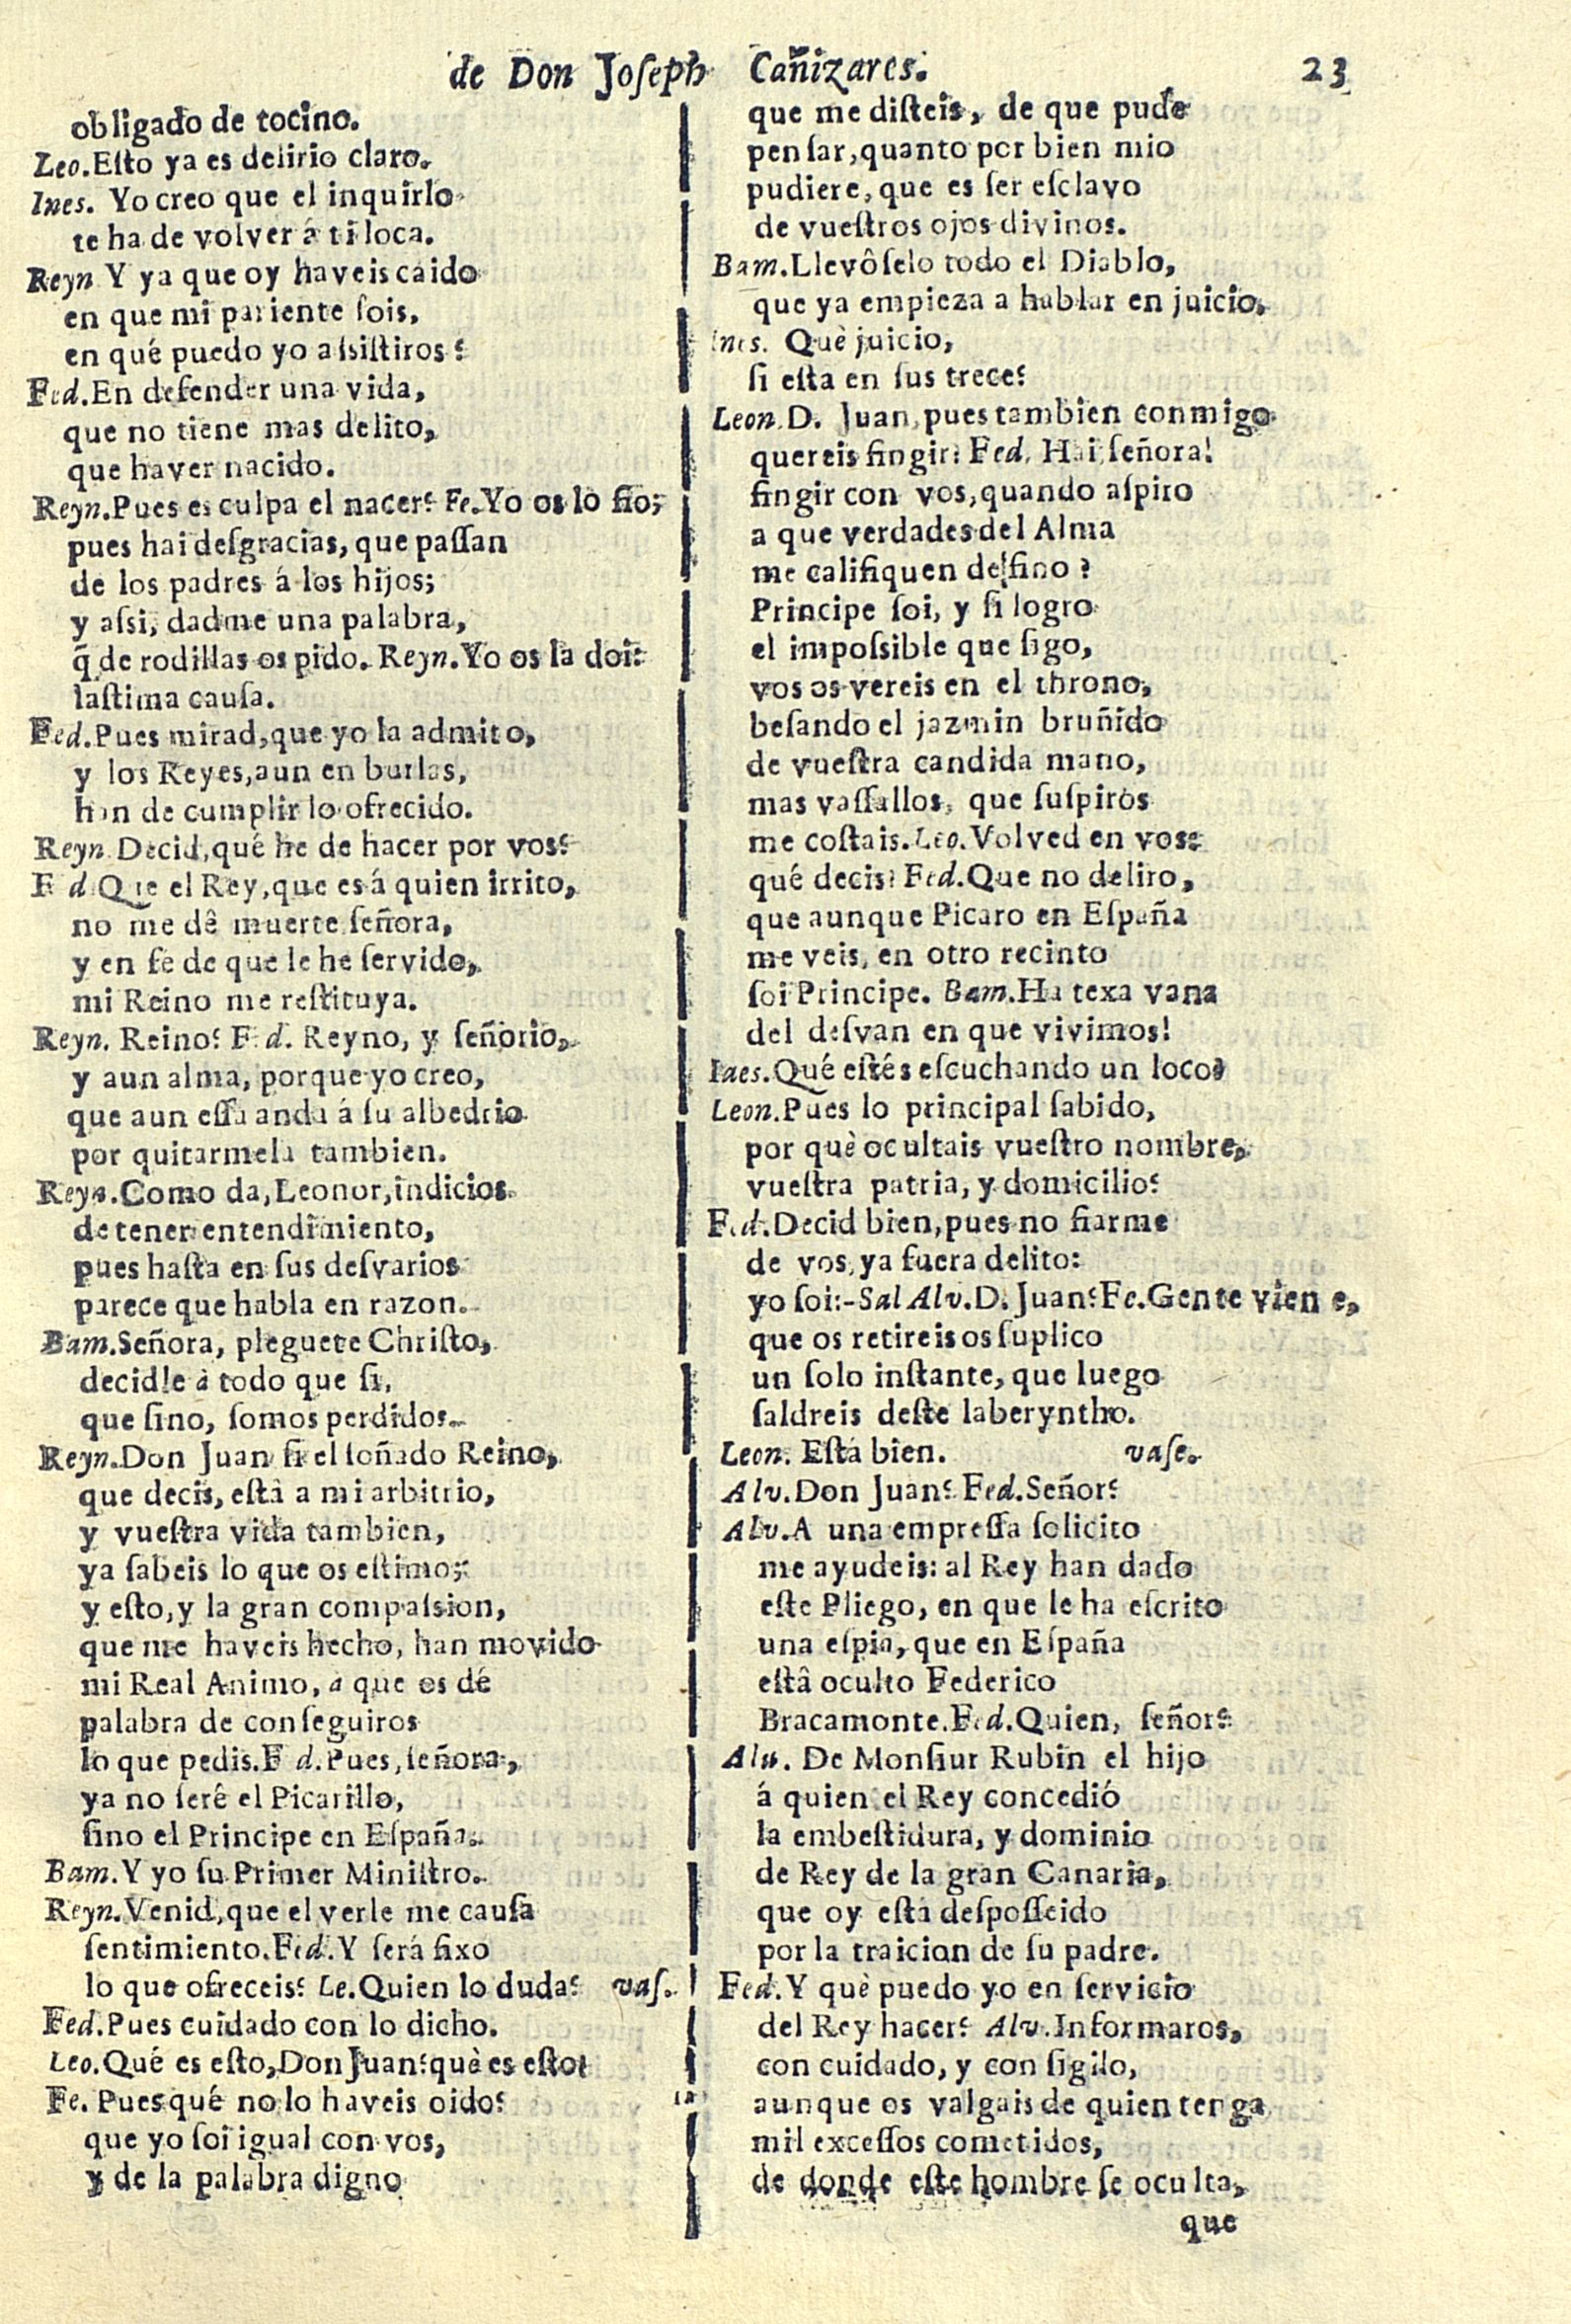 de Don Joſeph Cañizares. 23
obligado de tocino.
Leo. Eſto ya es delirio claro.
Ines. Yo creo que el inquirlo
te ha de volver á ti loca.
Reyn Y ya que oy haveis caido
en que mi pariente ſois,
en qué puedo yo aſsiſtiros?
Fed. En defender una vida,
que no tiene mas delito,
que haver nacido.
Reyn. Pues es culpa el nacer? Fe. Yo os lo fio;
pues hai deſgracias, que paſſan
de los padres á los hijos;
y aſsi, dadme una palabra,
q̃ de rodillas os pido. Reyn. Yo os la doi:
laſtima cauſa.
Fed. Pues mirad, que yo la admito,
y los Reyes, aun en burlas,
han de cumplir lo ofrecido.
Reyn. Decid, qué he de hacer por vos?
Fed. Que el Rey, que es á quien irrito,
no me dê muerte ſeñora,
y en fé de que le he ſervido,
mi Reino me reſtituya.
Reyn. Reino? Fed. Reyno, y ſeñorio,
y aun alma, porque yo creo,
que aun eſſa anda á ſu albedrio
por quitarmela tambien.
Reyn. Como da, Leonor, indicios
de tener entendimiento,
pues haſta en ſus deſvarios
parece que habla en razon.
Bam. Señora, pleguete Chriſto,
decidle à todo que ſi,
que ſino, ſomos perdidos.
Reyn. Don Juan ſi el ſoñado Reino,
que decis, eſtà a mi arbitrio,
y vueſtra vida tambien,
ya ſabeis lo que os eſtimo;
y eſto, y la gran compaſsion,
que me haveis hecho, han movido
mi Real Animo, a que os dé
palabra de conſeguiros
lo que pedis. Fed. Pues, ſeñora,
ya no ſeré el Picarillo,
ſino el Principe en Eſpaña.
Bam. Y yo ſu Primer Miniſtro.
Reyn. Venid, que el verle me cauſa
ſentimiento. Fed. Y será fixo
lo que ofreceis? Le. Quien lo duda? vaſ.
Fed. Pues cuidado con lo dicho.
Leo. Qué es eſto, Don Juan? què es eſto?
Fe. Pues qué no lo haveis oido?
que yo ſoi igual con vos,
y de la palabra digno
que me diſteis, de que pude
penſar, quanto por bien mio
pudiere, que es ſer eſclavo
de vueſtros ojos divinos.
Bam. Llevôſelo todo el Diablo,
que ya empieza a hablar en juicio.
Ines. Què juicio,
ſi eſta en ſus trece?
Leon. D. Juan, pues tambien conmigo
quereis fingir? Fed. Hai ſeñora!
fingir con vos, quando aſpiro
a que verdades del Alma
me califiquen de fino?
Principe ſoi, y ſi logro
el impoſsible que ſigo,
vos os vereis en el throno,
beſando el jazmin bruñido
de vueſtra candida mano,
mas vaſſallos, que ſuſpiros
me coſtais. Leo. Volved en vos:
qué decis? Fed. Que no deliro,
que aunque Picaro en Eſpaña
me veis, en otro recinto
ſoi Principe. Bam. Ha texa vana
del deſvan en que vivimos!
Ines. Qué eſtés eſcuchando un loco?
Leon. Pues lo principal ſabido,
por què ocultais vueſtro nombre,
vueſtra patria, y domicilio?
Fed. Decid bien, pues no fiarme
de vos, ya fuera delito:
yo ſoi:- Sal Alv. D. Juan? Fe. Gente viene,
que os retireis os ſuplico
un ſolo inſtante, que luego
ſaldreis deſte laberyntho.
Leon. Eſtá bien. vaſe.
Alv. Don Juan? Fed. Señor?
Alv. A una empreſſa ſolicito
me ayudeis: al Rey han dado
eſte Pliego, en que le ha eſcrito
una eſpia, que en Eſpaña
eſtâ oculto Federico
Bracamonte. Fed. Quien, ſeñor?
Alv. De Monſiur Rubin el hijo
á quien el Rey concedió
la embeſtidura, y dominio
de Rey de la gran Canaria,
que oy eſtá deſpoſſeido
por la traicion de ſu padre.
Fed. Y què puedo yo en ſervicio
del Rey hacer? Alv. Informaros,
con cuidado, y con ſigilo,
aunque os valgais de quien tenga
mil exceſſos cometidos,
de donde eſte hombre ſe oculta,
que